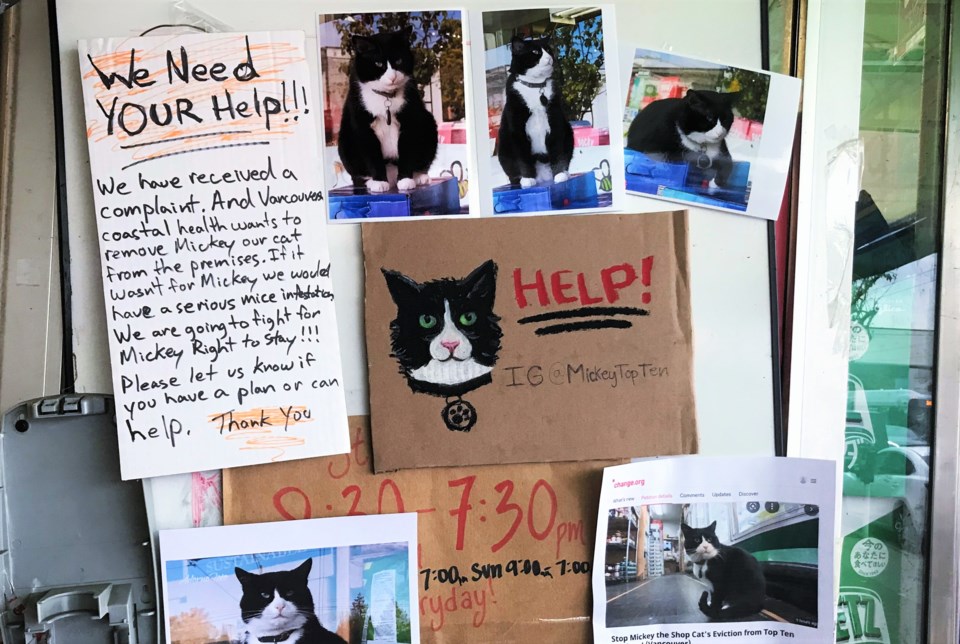 We Need
YOUR Help!!!
We have received a
complaint. And Vancouver
coastal health wants to
remove Mickey our cat
from the premises. If it
wasnt for Mickey we would
have a serious mice infestation
We are going to fight for
Mickey Right to stay!!!
Please let us know if
you have a plan or can
help. Thank You
HELP!
IG @MickeyTopTen
St
9:30 - 7:30pm
7:00pm Sun 9:00am 7:00
ryday!
change.org
Petition details Comments Updates Discover
Stop Mickey the Shop Cat's Eviction from Top Ten
(Vancouver)
SUSTAINABLE
今の
あなたに
食べてほしい
TZ